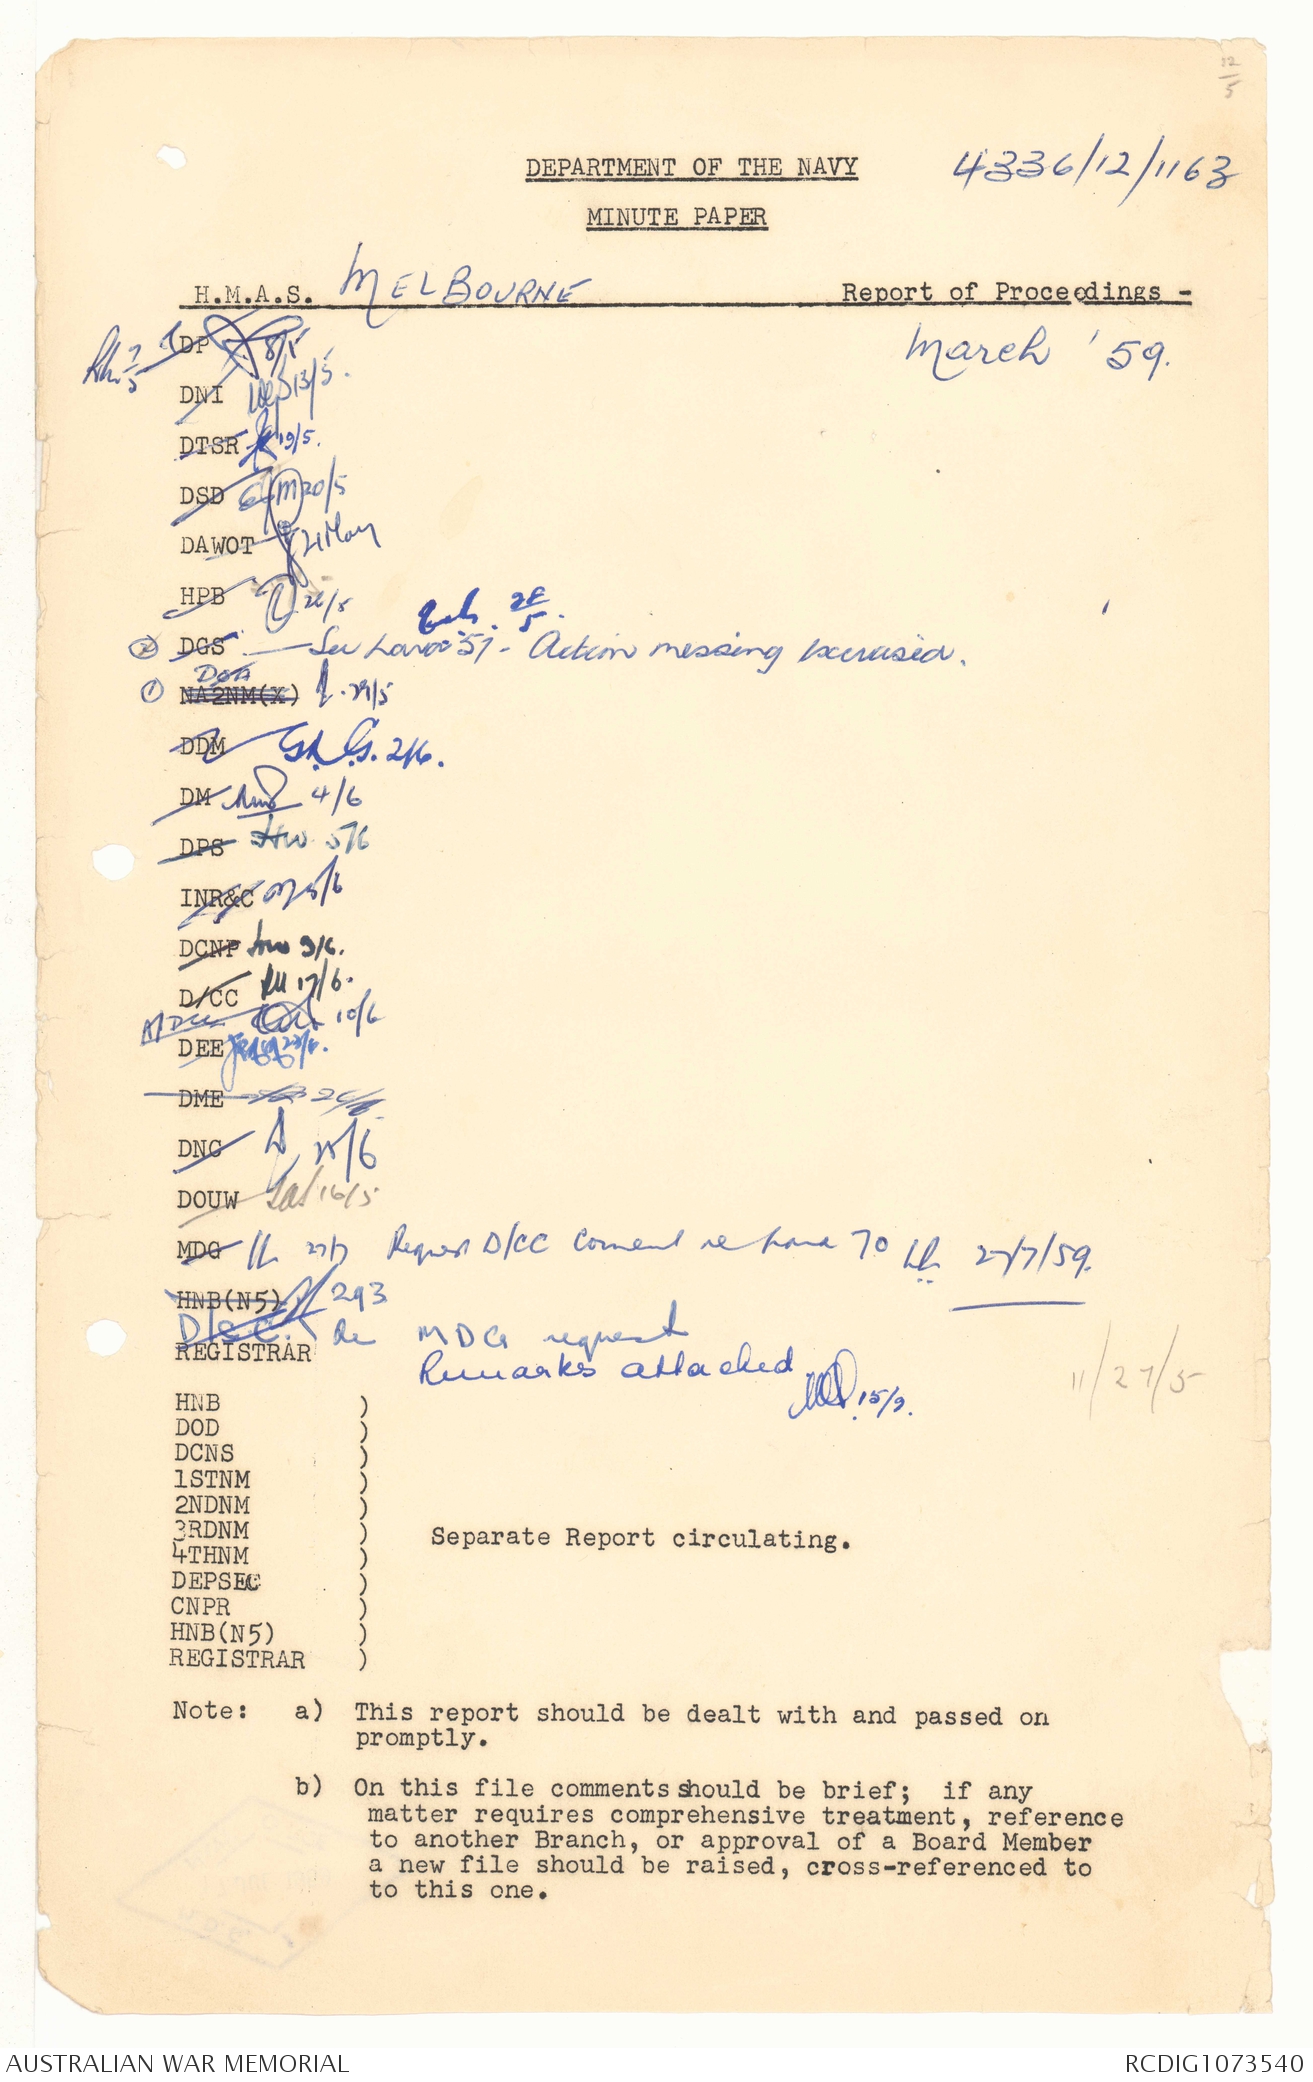 12/5
DEPARTMENT OF THE NAVY 4336/12/1163
MINUTE PAPER
H.M.A.S. MELBOURNE Report of Proceedings -
March '59.
DP 8/5
7/5
DNI 13/5.
DTSR 19/5.
DSD 20/5
DAWOT 21 May
HPB 26/5
28/5.
(2) DGS - See 57 - Action messing exercised.
DOA
(1) NA2NM(X) 29/5
DDM 2/6.
DM 4/6
DPS 5/6
INR&C 5/6
DCNP 9/6.
D/CC 17/6.
10/6
DEE 23/6.
DME
DNC /6
DOUW 16/5
MDG 27/7 Request D/CC Comment re 70 27/7/59.
HNB(N5) 293
Re MDG request
REGISTRAR
Remarks attached
15/9.
11/27/5
HNB )
DOD )
DCNS )
1STNM )
2NDNM )
3RDNM ) Separate Report circulating.
4THNM )
DEPSEC )
CNPR )
HNB(N5) )
REGISTRAR )
Note: a) This report should be dealt with and passed on
promptly.
b) On this file comments should be brief; if any
matter requires comprehensive treatment, reference
to another Branch, or approval of a Board Member
a new file should be raised, cross-referenced to
to this one.
AUSTRALIAN WAR MEMORIAL RCDIG1073540